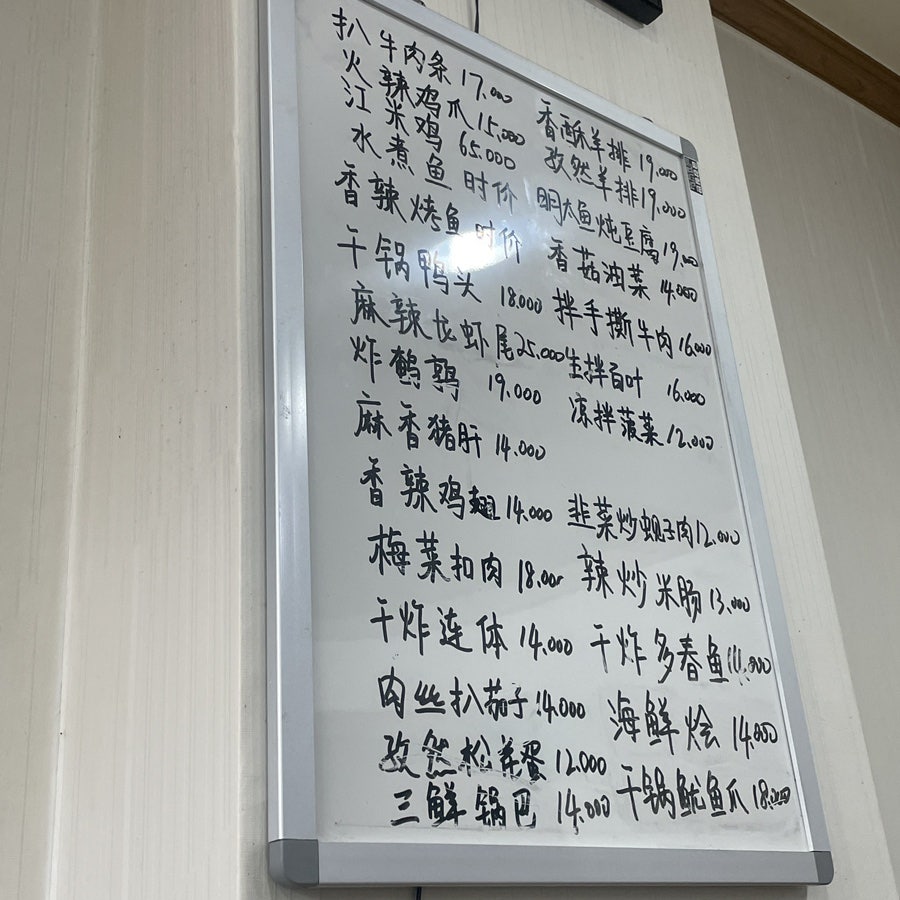 扒牛肉条 17.000
火辣鸡爪 15.000
江米鸡 65.000
水煮鱼 时价
香辣烤鱼 时价
干锅鸭头 18.000
麻辣龙虾尾 25.000
炸鹌鹑 19.000
麻香猪肝 14.000
香辣鸡翅 14.000
梅菜扣肉 18.000
干炸连体 14.000
肉丝扒茄子 14.000
孜然松花蛋 12.000
三鲜锅巴 14.000
香酥羊排 19.000
孜然羊排 19.000
明太鱼炖豆腐 19.000
香菇油菜 14.000
拌手撕牛肉 16.000
生拌百叶 16.000
凉拌菠菜 12.000
韭菜炒蚬子肉 12.000
辣炒米肠 13.000
干炸多春鱼 14.000
海鲜烩 14.000
干锅鱿鱼爪 18.000